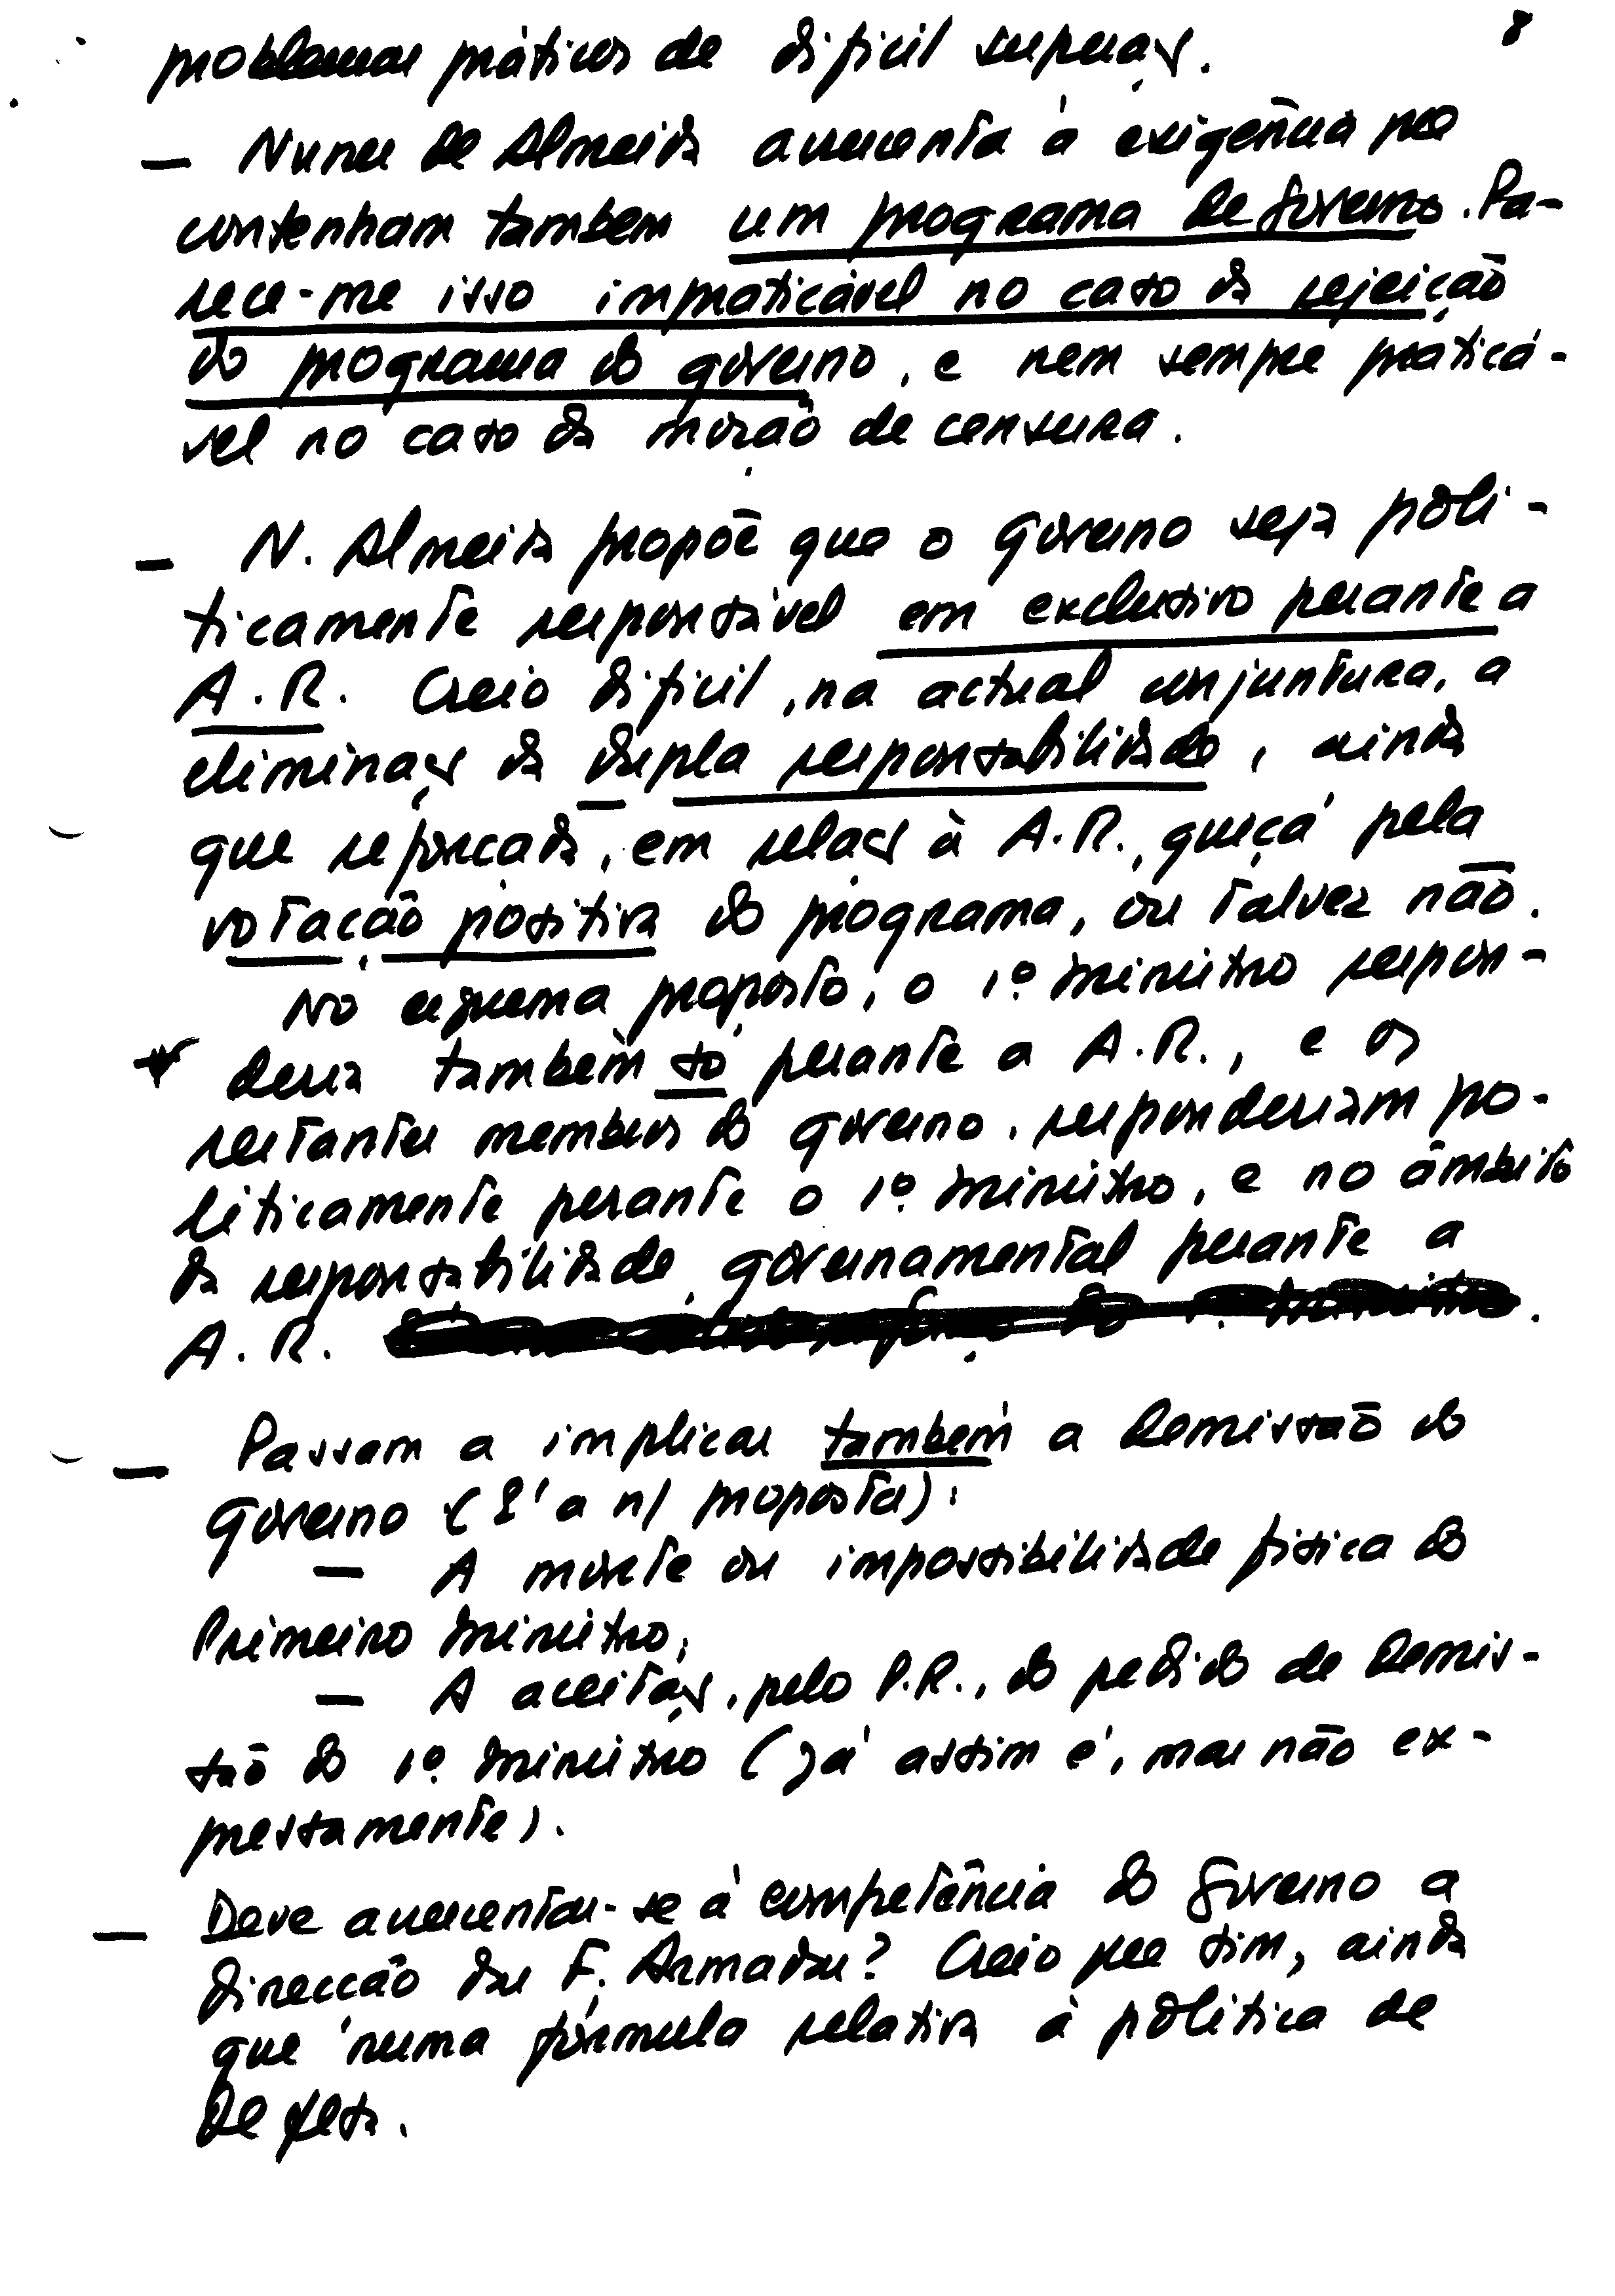 8
problemas práticos de dificil superação.
— Nunes de Almeida acrescenta a exigência que
contenham também um programa de governo. Pa-
rece-me isso impraticável no caso da rejeição
do programa do governo, e nem sempre praticá-
vel no caso da moção de censura.
— N. Almeida propõe que o governo seja poli-
ticamente responsável em exclusivo perante a
A.R. Creio dificil, na actual conjuntura, a
eliminação da dupla responsabilidade, ainda
que reforçada, em relação à A.R., quiçá pela
votação positiva do programa, ou talvez não.
No esquema proposto, o 1º ministro respon-
deria também só perante a A.R., e os
restantes membros do governo, responderiam po-
liticamente perante o 1º ministro, e no âmbito
da responsabilidade governamental perante a
A.R.
— Passam a implicar também a demissão do
governo (É a n/ proposta):
— A morte ou impossibilidade fisica do
Primeiro ministro,
— A aceitação, pelo P.R., do pedido de demis-
são do 1º ministro (já assim é, mas não ex-
pressamente).
— Deve acrescentar-se à competência do governo a
direcção das F. Armadas? Creio que sim, ainda
que numa fórmula relativa à politica de
defesa.